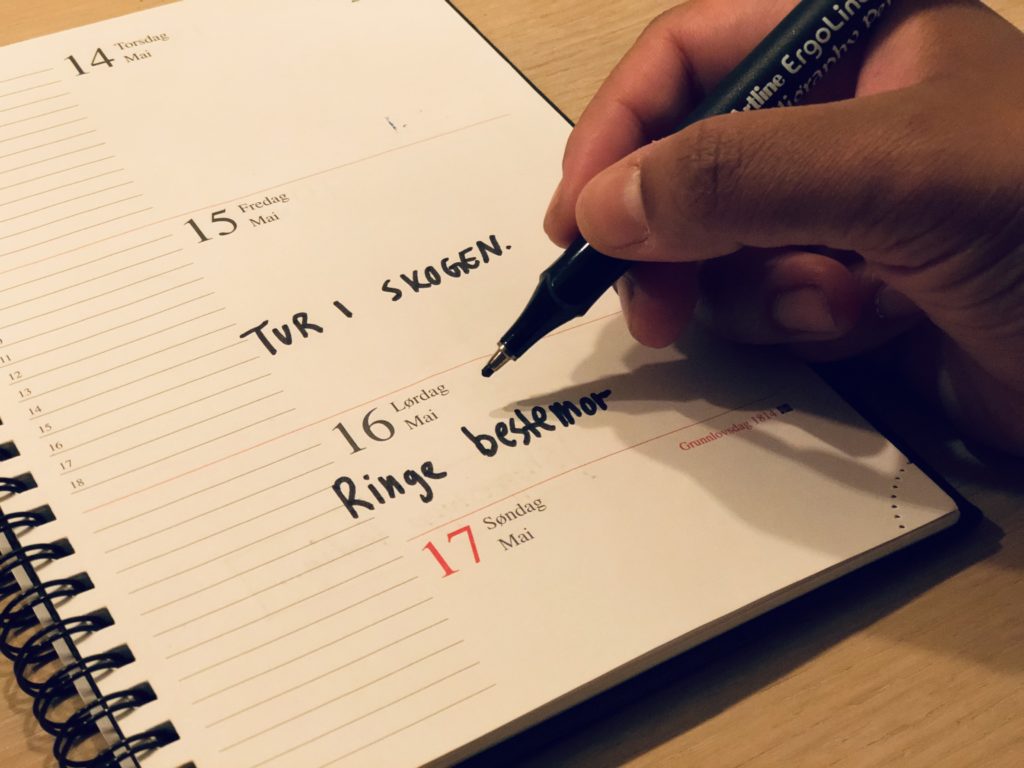 14 Torsdag
Mai
15 Fredag
Mai
TUR I SKOGEN.
11
12
13
14
15
16
17
18
16 Lørdag
Mai
Ringe bestemor
Grunnlovsdag 1814
17 Søndag
Mai
ErgoLine